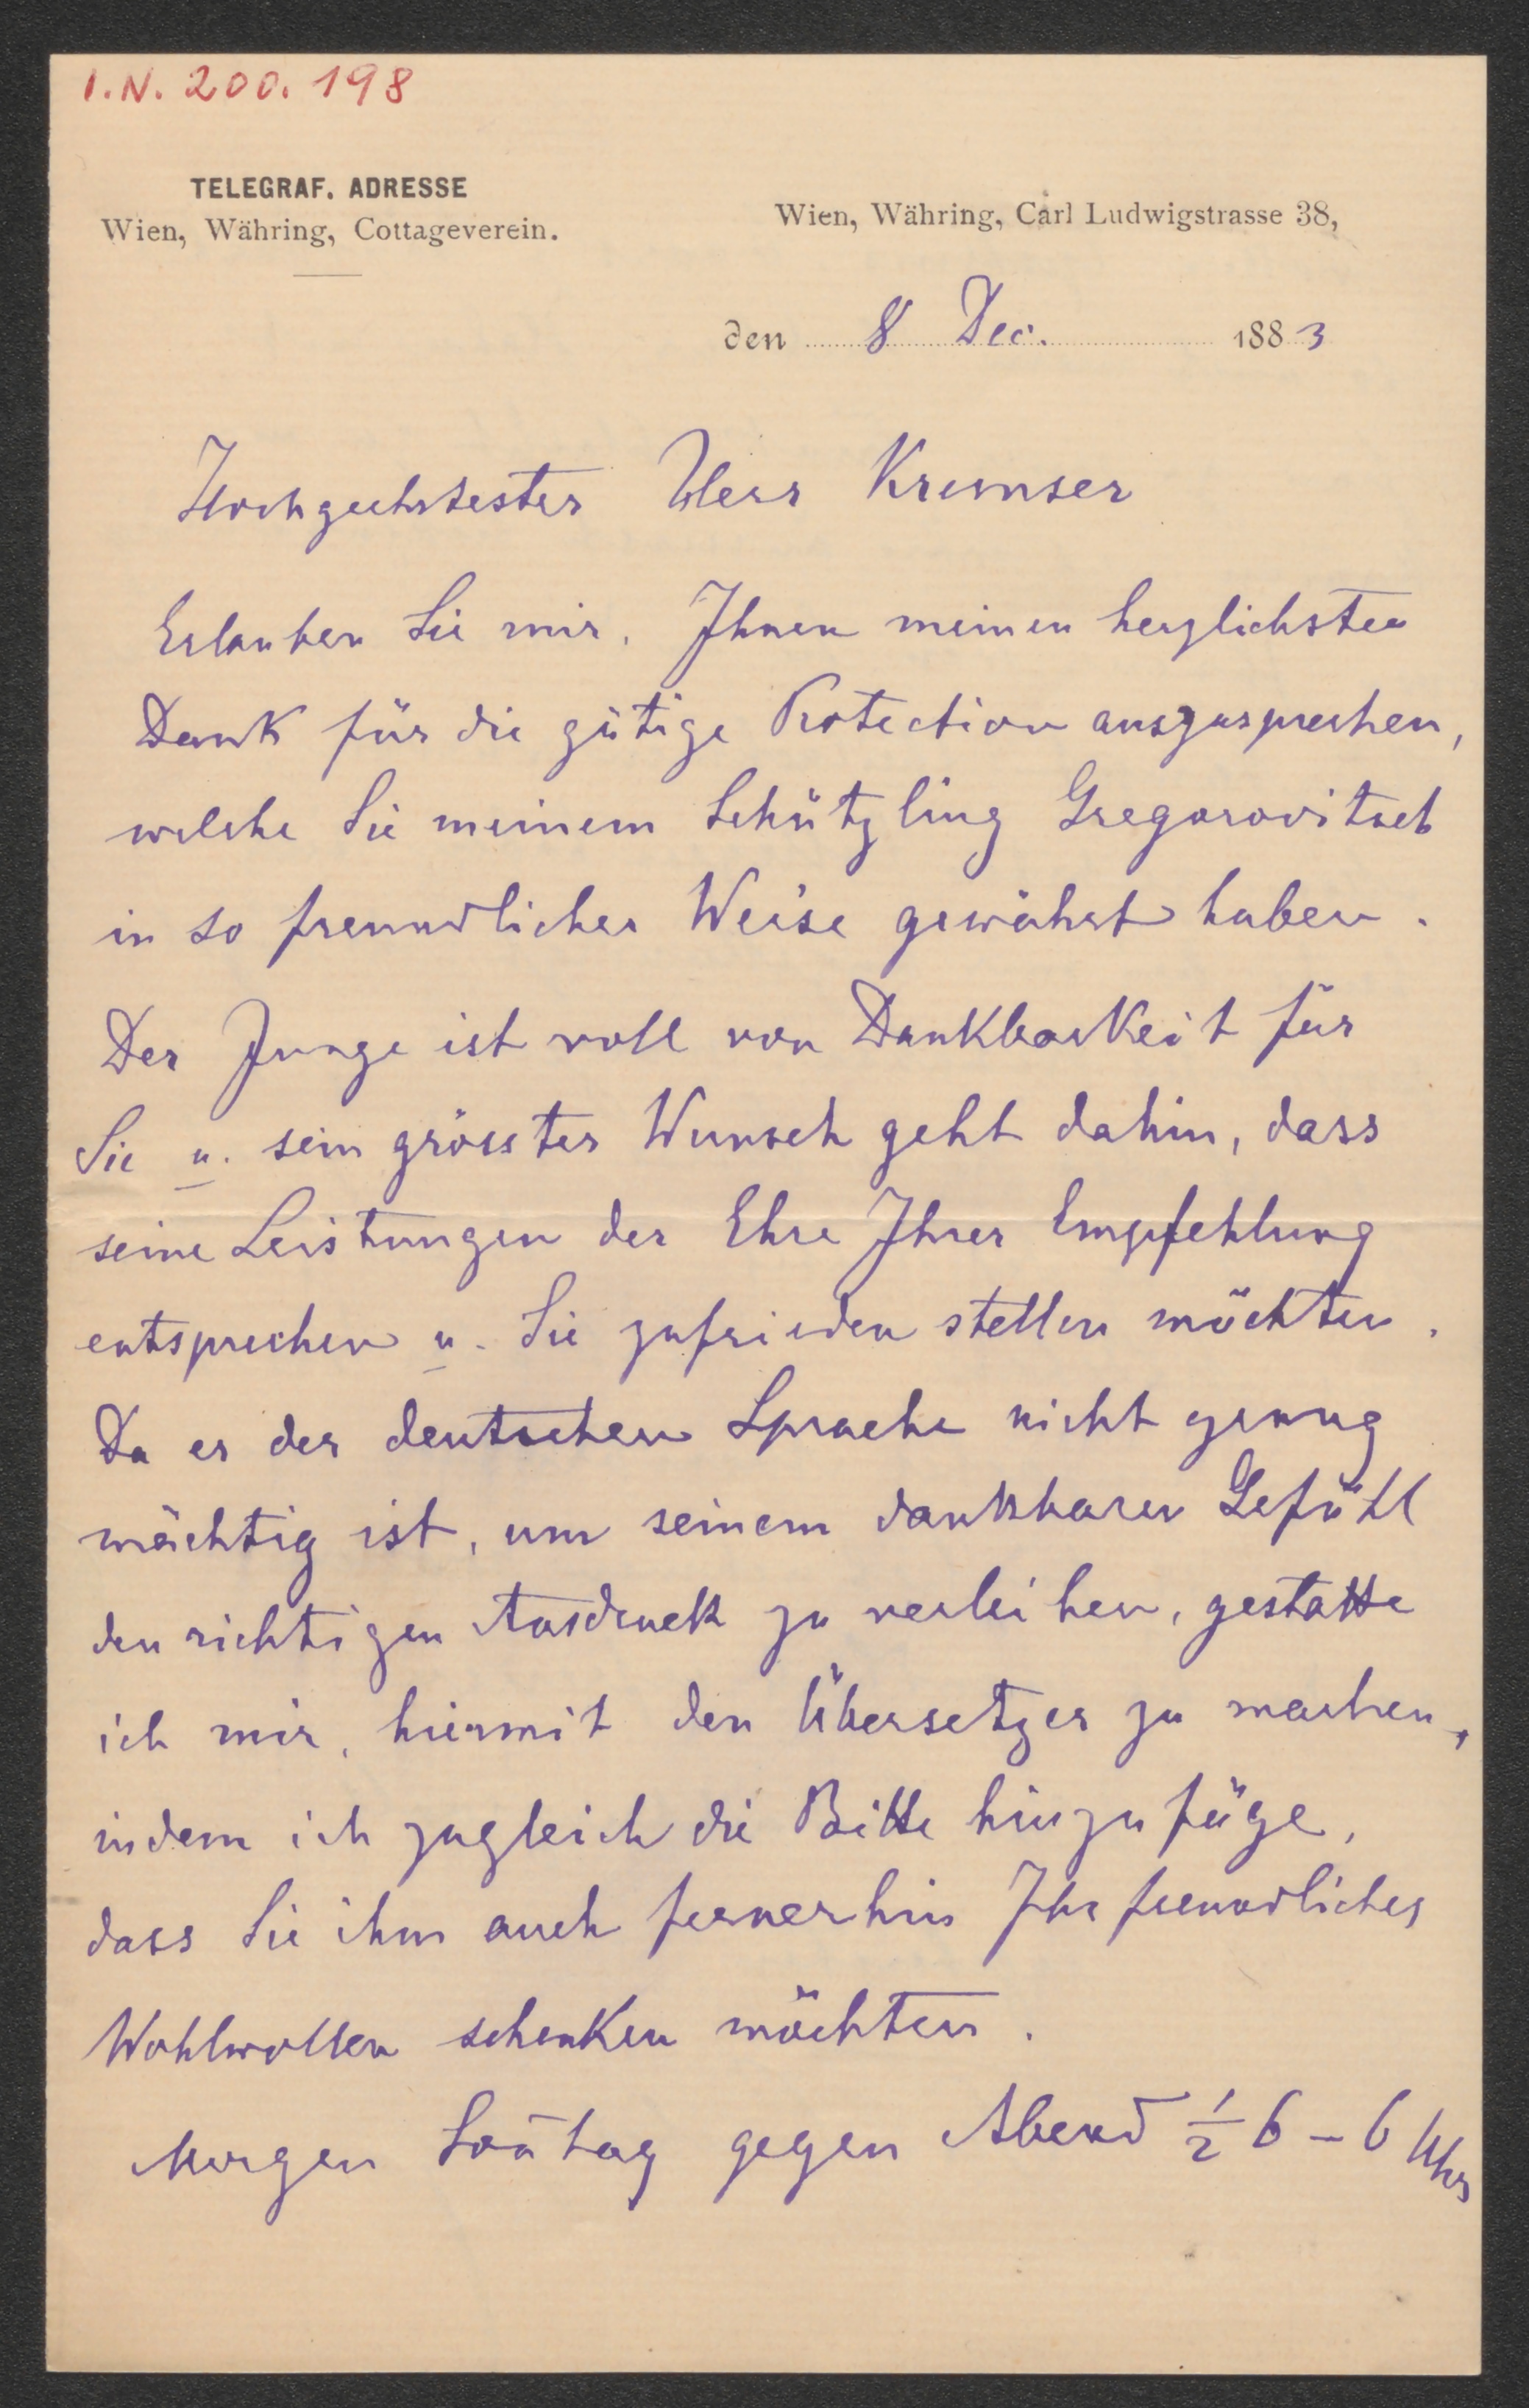 I.N. 200.198
TELEGRAF. ADRESSE
Wien, Währing, Cottageverein.
Wien, Währing, Carl Ludwigstrasse 38,
den 8 Dec. 1883
Hochgeehrtester Herr Kremser
Erlauben Sie mir, Ihnen meinen herzlichsten
Dank für die gütige Protection auszusprechen,
welche Sie meinem Schützling Gregorovitsch
in so freundlicher Weise gewährt haben.
Der Junge ist voll von Dankbarkeit für
Sie u. sein grösster Wunsch geht dahin, dass
seine Leistungen der Ehre Ihrer Empfehlung
entsprechen u. Sie zufrieden stellen möchten.
Da er der deutschen Sprache nicht genug
mächtig ist, um seinem dankbaren Gefühl
den richtigen Ausdruck zu verleihen, gestatte
ich mir, hiermit den Übersetzer zu machen,
indem ich zugleich die Bitte hinzufüge,
dass Sie ihm auch fernerhin Ihr freundliches
Wohlwollen schenken möchten.
Morgen Son̄tag gegen Abend ½6 – 6 Uhr